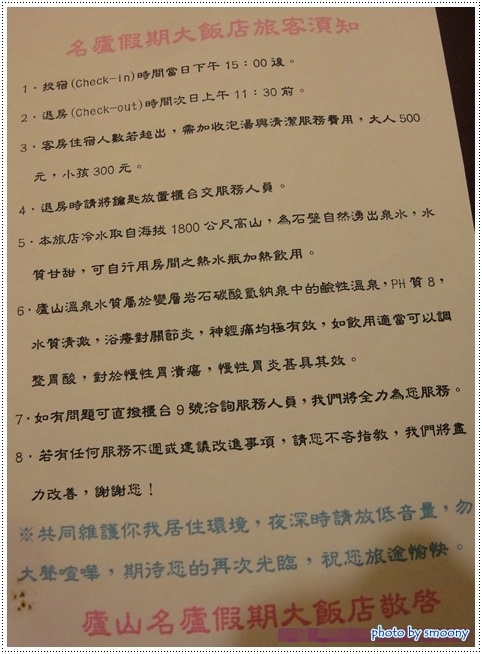 名廬假期大飯店旅客須知
1．投宿(Check-in)時間當日下午 15：00 後。
2．退房(Check-out)時間次日上午 11：30 前。
3．客房住宿人數若超出，需加收泡湯與清潔服務費用，大人 500
元，小孩 300 元。
4．退房時請將鑰匙放置櫃台交服務人員。
5．本旅店冷水取自海拔 1800 公尺高山，為石壁自然湧出泉水，水
質甘甜，可自行用房間之熱水瓶加熱飲用。
6．廬山溫泉水質屬於變層岩石碳酸氫納泉中的鹼性溫泉，PH 質 8，
水質清澈，浴療對關節炎，神經痛均極有效，如飲用適當可以調
整胃酸，對於慢性胃潰瘍，慢性胃炎甚具其效。
7．如有問題可直撥櫃台 9 號洽詢服務人員，我們將全力為您服務。
8．若有任何服務不週或建議改進事項，請您不吝指教，我們將盡
力改善，謝謝您！
※共同維護你我居住環境，夜深時請放低音量，勿
大聲喧嘩，期待您的再次光臨，祝您旅途愉快。
廬山名廬假期大飯店敬啓
photo by smoony